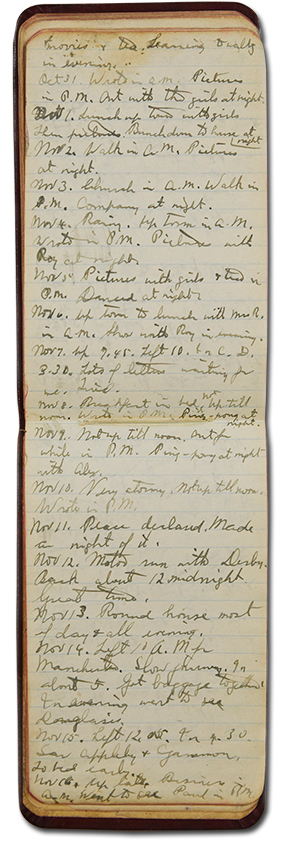 movies & tea. Learning to waltz
in evening.
Oct 31. Wrote in a.m. Pictures
in P.M. Out with the girls at night.
Nov 1. Lunch up town with girls
then pictures. Bunch down to house at night
Nov 2. Walk in A.M. Pictures
at night.
Nov 3. Church in A.M. Walk in
P.M. Company at night.
Nov 4. Rainy. Up town in A.M.
Wrote in P.M. Pictures with
Roy at night.
Nov 5. Pictures with girls & tea in
P.M. Danced at night.
Nov 6. Up town to lunch with Mrs R.
in A.M. Show with Roy in evening.
Nov 7. Up 9.45. Left 10. In C. D.
3.30. Lots of letters waiting for
me. Tired.
Nov 8. Breakfast in bed, up till
noon. Wrote in P.M. Ping-pong at night.
Nov 9. Not up till noon. Out for
while in P.M. Ping-pong at night
with Alex.
Nov 10. Very stormy. Not up till noon.
Wrote in P.M.
Nov 11. Peace declared. Made
a night of it.
Nov 12. Motor run with Derby.
Back about 12 midnight
Great time.
Nov 13. Round house most
of day & all evening.
Nov 14. Left 10 A.M. for
Manchester. Slow journey. In
about 5. Got baggage together.
In evening went to see
Nov 15. Left 12 In 4.30.
Saw Appleby & Gammon,
to bed early.
Nov 16. Up late. Business in
A.M. Went to see Paul in P.M.